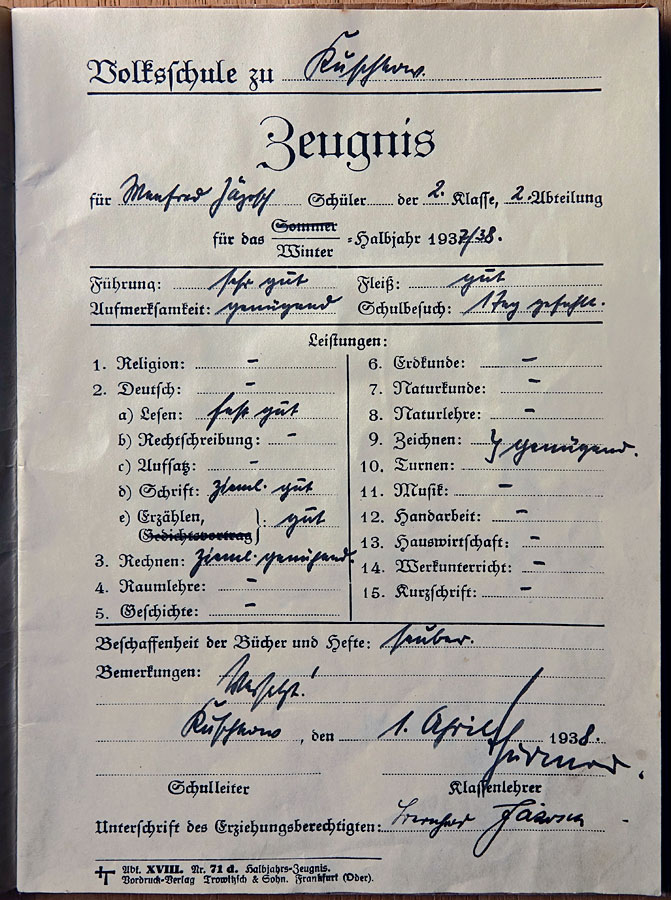 Volksschule zu Kuschkow.
Zeugnis
für Manfred Schüler der 2. Klasse, 2. Abteilung
für das Sommer
Winter =Halbjahr 1937/38.
Führung: sehr gut Fleiß: gut
Aufmerksamkeit: genügend Schulbesuch: 1 Tag gefehlt.
Leistungen:
1. Religion: –
2. Deutsch: –
a) Lesen: fast gut
b) Rechtschreibung: –
c) Aufsatz: –
d) Schrift: zieml. gut
e) Erzählen,
Gedichtsvortrag }: gut
3. Rechnen: zieml. genügend.
4. Raumlehre: –
5. Geschichte: –
6. Erdkunde: –
7. Naturkunde: –
8. Naturlehre: –
9. Zeichnen: } genügend.
10. Turnen:
11. Musik: –
12. Handarbeit: –
13. Hauswirtschaft: –
14. Werkunterricht: –
15. Kurzschrift: –
Beschaffenheit der Bücher und Hefte: sauber.
Bemerkungen: Versetzt!
Kuschkow, den 1. April 1938.
Schulleiter Klassenlehrer
Unterschrift des Erziehungsberechtigten:
Abt. XVIII. Nr. 71 d. Halbjahrs-Zeugnis.
Vordruck-Verlag Trowitzsch & Sohn. Frankfurt (Oder).